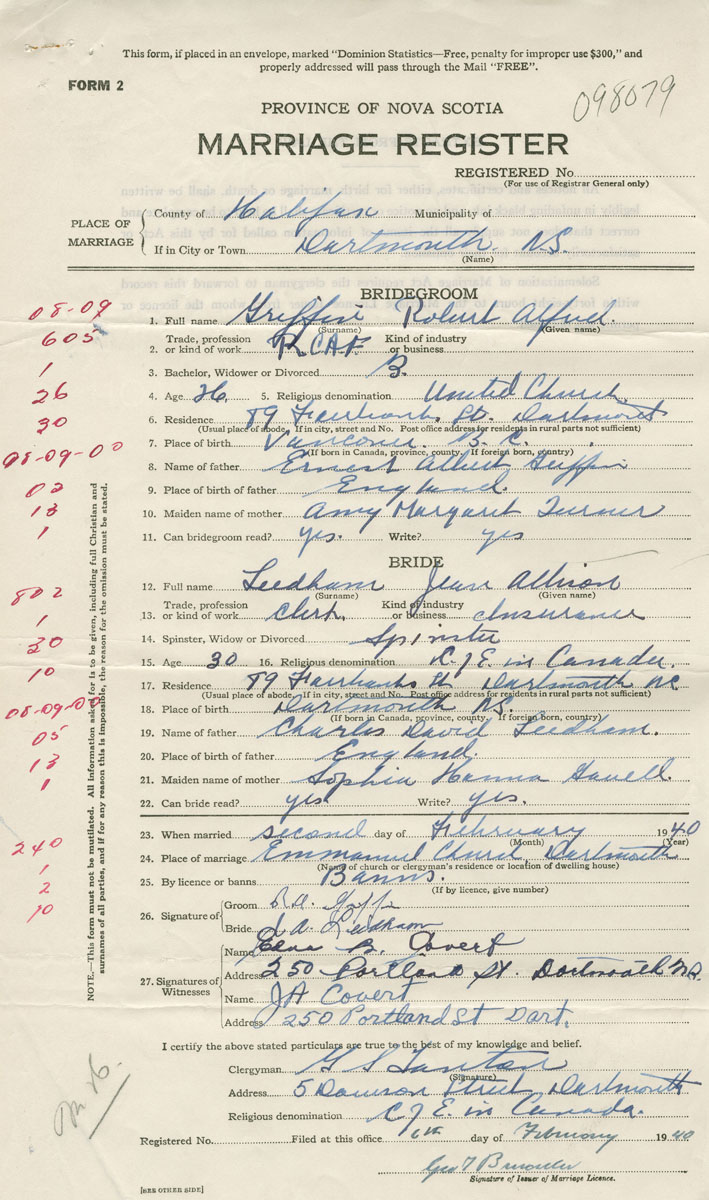 This form, if placed in an envelope, marked "Dominion Statistics—Free, penalty for improper use $300," and
properly addressed will pass through the Mail "FREE".
FORM 2
098079
PROVINCE OF NOVA SCOTIA
MARRIAGE REGISTER
REGISTERED No.
(For use of Registrar General only)
PLACE OF MARRIAGE
County of Halifax Municipality of
If in City or Town Dartmouth. N.S.
(Name)
BRIDEGROOM
08-09
1. Full name Griffin Robert Alfred.
(Surname) (Given name)
605
Trade, profession Kind of industry
2. or kind of work R.C.A.F. or business
1
3. Bachelor, Widower or Divorced B.
26
4. Age 26. 5. Religious denomination United Church.
30
6. Residence 89 Fairbanks St. Dartmouth
(Usual place of abode. If in city, street and No. Post office address for residents in rural parts not sufficient)
08-09-00
7. Place of birth Vancouver. B.C.
(If born in Canada, province, county. If foreign born, country)
8. Name of father Ernest Albert Griffin
02
9. Place of birth of father England.
13
10. Maiden name of mother Amy Margaret Turner
1
11. Can bridegroom read? yes. Write? yes
BRIDE
802
12. Full name Leedham Jean Allison
(Surname) (Given name)
Trade, profession Kind of industry
1
13. or kind of work Clerk. or business Insurance
30
14. Spinster, Widow or Divorced Spinster
10
15. Age 30 16. Religious denomination C. of E. in Canada.
17. Residence 89 Fairbanks St. Dartmouth
(Usual place of abode. If in city, street and No. Post office address for residents in rural parts not sufficient)
08-09-09
18. Place of birth Dartmouth N.S.
(If born in Canada, province, county. If foreign born, country)
05
19. Name of father Charles David Leedham.
13
20. Place of birth of father England.
1
21. Maiden name of mother Sophia Hanna
22. Can bride read? yes Write? yes.
240
23. When married second day of February 1940
(Month) (Year)
1
24. Place of marriage Emmanuel Church, Dartmouth
(Name of church or clergyman's residence or location of dwelling house)
2
25. By licence or banns Banns.
(If by licence, give number)
10
26. Signature of Groom R.A. Griffin
Bride J.A. Leedham
27. Signatures of Witnesses
Name B. Covert
Address 250 Portland St. Dartmouth N.S.
Name J A Covert
Address 250 Portland St Dart.
NOTE.—This form must not be mutilated. All information asked for is to be given, including full Christian and
surnames of all parties, and if for any reason this is impossible, the reason for the omission must be stated.
I certify the above stated particulars are true to the best of my knowledge and belief.
Clergyman G S Tanton
(Signature)
Address 5 Dawson Street, Dartmouth
Religious denomination C of E. in Canada.
Registered No. Filed at this office 6th day of February 1940
Signature of Issuer of Marriage Licence.
[SEE OTHER SIDE]